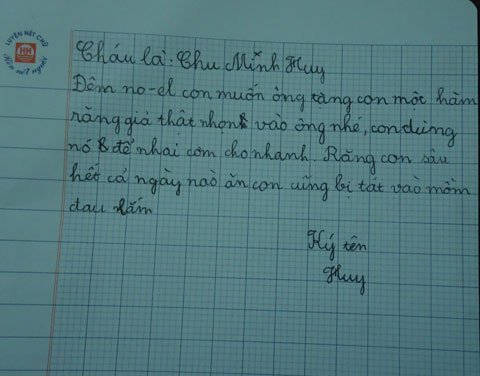 LUYỆN NÉT CHỮ
HN
Rèn nết người
Cháu là: Chu Minh Huy
Đêm no-el con muốn ông tặng con một hàm
răng giả thật nhọn vào ông nhé, con dùng
nó để nhai cơm cho nhanh. Răng con sâu
hết cả ngày nào ăn con cũng bị tát vào mồm
đau lắm
Ký tên
Huy